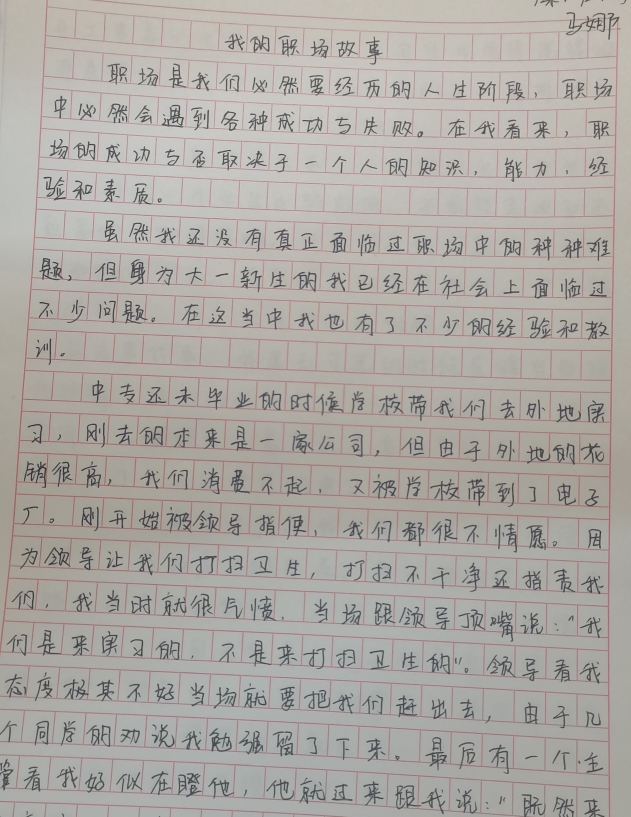 马娜
我的职场故事
职场是我们必然要经历的人生阶段，职场
中必然会遇到各种成功与失败。在我看来，职
场的成功与否取决于一个人的知识，能力，经
验和素质。
虽然我还没有真正面临过职场中的种种难
题，但身为大一新生的我已经在社会上面临过
不少问题。在这当中我也有了不少的经验和教
训。
中专还未毕业的时候学校带我们去外地实
习，刚去的本来是一家公司，但由于外地的花
销很高，我们消费不起，又被学校带到了电子
厂。刚开始被领导指使，我们都很不情愿。因
为领导让我们打扫卫生，打扫不干净还指责我
们，我当时就很气愤，当场跟领导顶嘴说："我
们是来实习的，不是来打扫卫生的"。领导看我
态度极其不好当场就要把我们赶出去，由于几
个同学的劝说我勉强留了下来。最后有一个主
管看我好似在瞪他，他就过来跟我说："既然来